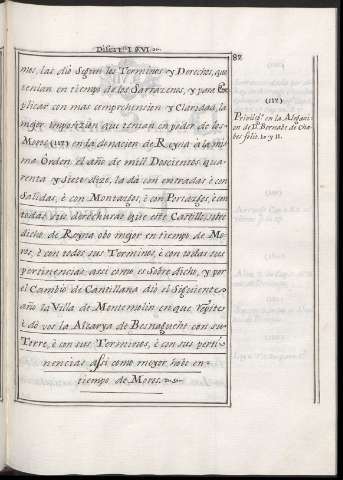 Disert.ⁿ I. § VI.
82
mos, las dió Segun los Terminos y Derechos, que
tenian en tiempo de los Sarracenos, y para Ex
plicar con mas comprehension y Claridad, la
mejor Imposizion que tenian en poder de los
Moros (117) en la donacion de Reyna a la mis
ma Orden el año de mil Doscientos qua-
renta y Siete dize, la dá con entradas è con
Sallidas, è con Montazgos, è con Portazgos, è con
todas sus derechuras que este Castillo, sobre
dicho de Reyna obo mejor en tiempo de Mo-
ros, è con todos sus Terminos, è con todas sus
pertinencias assi como es Sobre dicho, y por
el Cambio de Cantillana dió el Siguiente
año la Villa de Montemolin en que repite
è dó vos la Alcarya de Benagucht con su
Torre, è con sus Terminos, è con sus perti-
nencias assi como mejor hobo en
tiempo de Moros.
(117)
Privilig.ˢ en la Alegazi
on de D. Bernabe de Cha
bes folio. 10 y 11.